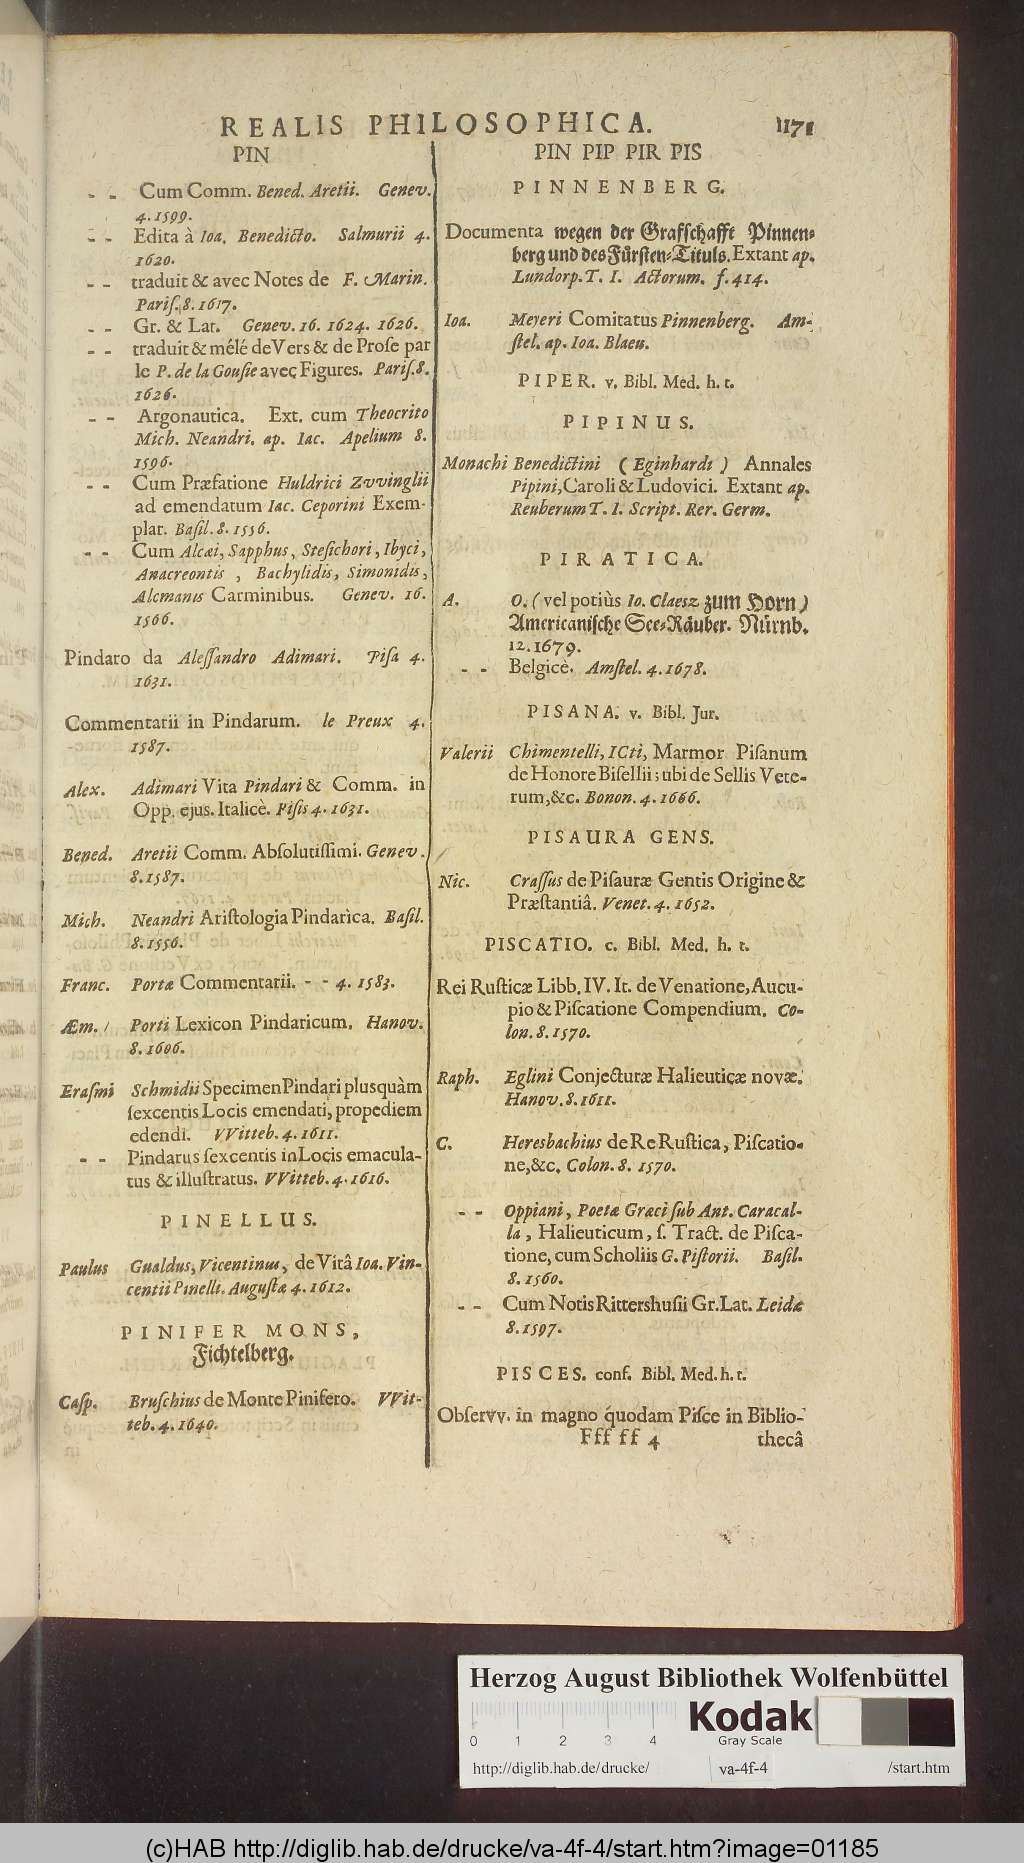 REALIS PHILOSOPHICA. 1171
PIN
- - Cum Comm. Bened. Aretii. Genev.
4. 1599.
- - Edita à Ioa. Benedicto. Salmurii 4.
1620.
- - traduit & avec Notes de F. Marin.
Pariſ. 8. 1617.
- - Gr. & Lat. Genev. 16. 1624. 1626.
- - traduit & mélé de Vers & de Proſe par
le P. de la Gouſie avec Figures. Pariſ. 8.
1626.
- - Argonautica. Ext. cum Theocrito
Mich. Neandri. ap. Iac. Apelium 8.
1596.
- - Cum Præfatione Huldrici Zvvinglii
ad emendatum Iac. Ceporini Exem-
plar. Baſil. 8. 1556.
- - Cum Alcæi, Sapphus, Steſichori, Ibyci,
Anacreontis, Bachylidis, Simonidis,
Alcmanis Carminibus. Genev. 16.
1566.
Pindaro da Aleſſandro Adimari. Piſa 4.
1631.
Commentarii in Pindarum. le Preux 4.
1587.
Alex. Adimari Vita Pindari & Comm. in
Opp. ejus. Italicè. Piſis 4. 1631.
Bened. Aretii Comm. Abſolutiſſimi. Genev.
8. 1587.
Mich. Neandri Ariſtologia Pindarica. Baſil.
8. 1556.
Franc. Portæ Commentarii. - - 4. 1583.
Æm. Porti Lexicon Pindaricum. Hanov.
8. 1606.
Eraſmi Schmidii Specimen Pindari plusquàm
ſexcentis Locis emendati, propediem
edendi. VVitteb. 4. 1611.
- - Pindarus ſexcentis in Locis emacula-
tus & illuſtratus. VVitteb. 4. 1616.
PINELLUS.
Paulus Gualdus, Vicentinus, de Vitâ Ioa. Vin-
centii Pinelli. Auguſtæ 4. 1612.
PINIFER MONS,
Fichtelberg.
Caſp. Bruſchius de Monte Pinifero. VVit-
teb. 4. 1640.
PIN PIP PIR PIS
PINNENBERG.
Documenta wegen der Graffſchafft Pinnen-
berg und des Fürſten-Tituls. Extant ap.
Lundorp. T. I. Actorum. f. 414.
Ioa. Meyeri Comitatus Pinnenberg. Am-
ſtel. ap. Ioa. Blaeu.
PIPER. v. Bibl. Med. h. t.
PIPINUS.
Monachi Benedictini (Eginhardi) Annales
Pipini, Caroli & Ludovici. Extant ap.
Reuberum T. I. Script. Rer. Germ.
PIRATICA.
A. O. (vel potiùs Io. Claesz zum Horn)
Americaniſche See-Räuber. Nürnb.
12. 1679.
- - Belgicè. Amſtel. 4. 1678.
PISANA. v. Bibl. Jur.
Valerii Chimentelli, ICti, Marmor Piſanum
de Honore Biſellii; ubi de Sellis Vete-
rum, &c. Bonon. 4. 1666.
PISAURA GENS.
Nic. Craſſus de Piſauræ Gentis Origine &
Præſtantiâ. Venet. 4. 1652.
PISCATIO. c. Bibl. Med. h. t.
Rei Ruſticæ Libb. IV. It. de Venatione, Aucu-
pio & Piſcatione Compendium. Co-
lon. 8. 1570.
Raph. Eglini Conjecturæ Halieuticæ novæ.
Hanov. 8. 1611.
C. Heresbachius de Re Ruſtica, Piſcatio-
ne, &c. Colon. 8. 1570.
- - Oppiani, Poetæ Græci ſub Ant. Caracal-
la, Halieuticum, ſ. Tract. de Piſca-
tione, cum Scholiis G. Piſtorii. Baſil.
8. 1560.
- - Cum Notis Rittershuſii Gr. Lat. Leidæ
8. 1597.
PISCES. conf. Bibl. Med. h. t.
Obſervv. in magno quodam Piſce in Biblio-
Fff ff 4 thecâ
Herzog August Bibliothek Wolfenbüttel
Kodak
0 1 2 3 4 Gray Scale
http://diglib.hab.de/drucke/ va-4f-4 /start.htm
(c)HAB http://diglib.hab.de/drucke/va-4f-4/start.htm?image=01185